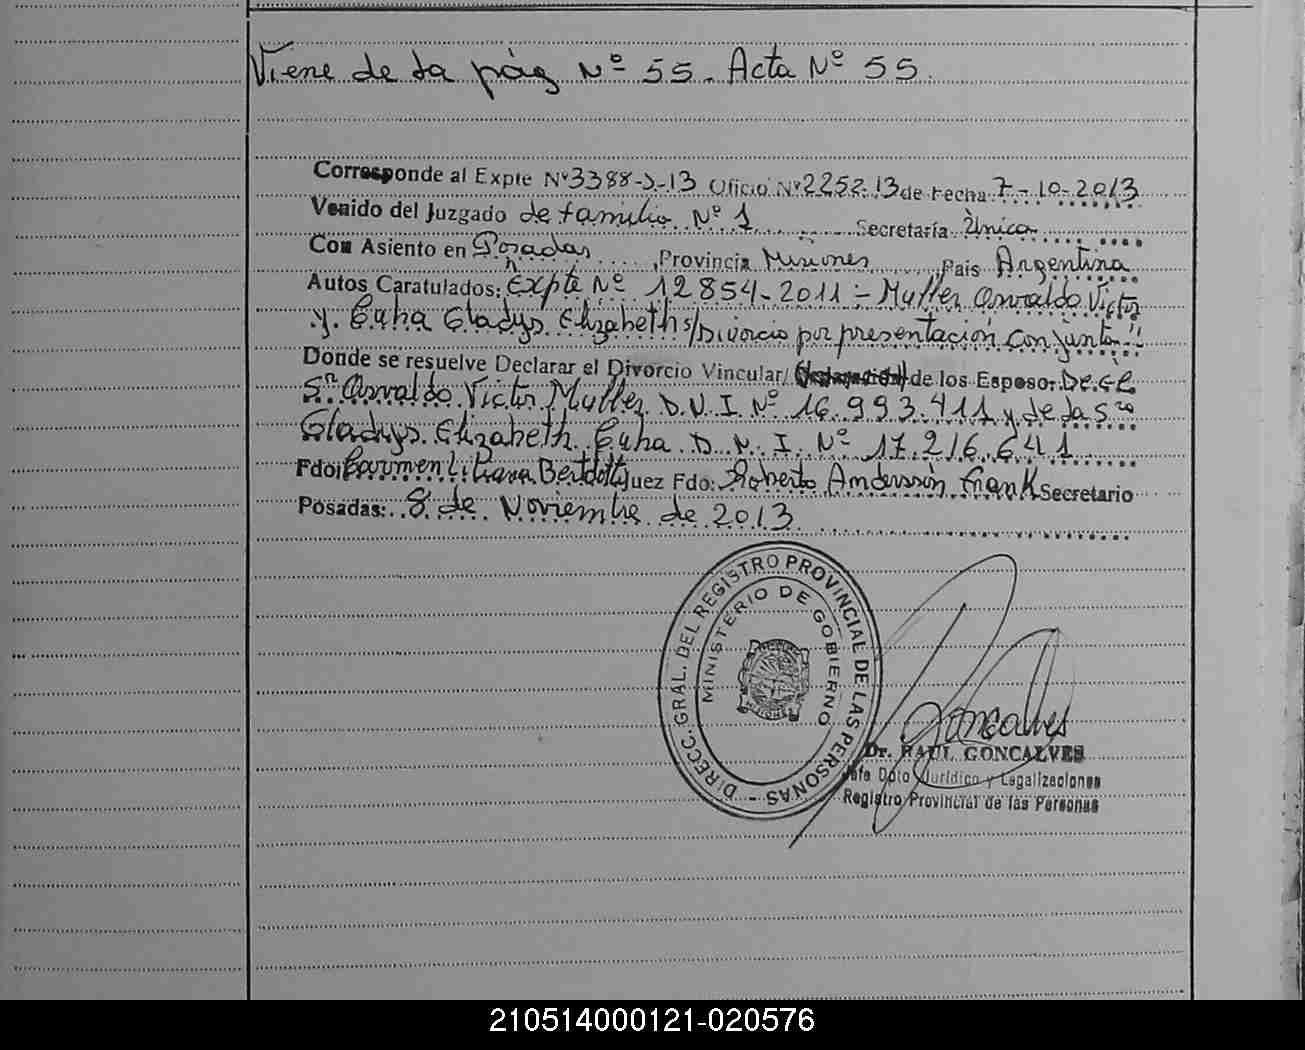 Viene de la pág Nº 55. Acta Nº 55.
Corresponde al Expte Nº 3388-J-13 Oficio Nº 2252.13 de Fecha 7-10-2013
Venido del Juzgado de familia Nº 1 Secretaría Única
Con Asiento en Posadas, Provincia Misiones, Pais Argentina
Autos Caratulados: Expte Nº 12854-2011 - Muller Osvaldo Victor
y Cuba Gladys Elizabeth s/Divorcio por presentación conjunta"
Donde se resuelve Declarar el Divorcio Vincular/ de los Esposos: De el
Sr. Osvaldo Victor Muller D.N.I. Nº 16.993.411 y de la Sra
Gladys Elizabeth Cuba D.N.I. Nº 17.216.641
Fdo: Carmen Liliana Bertolotti Juez Fdo: Roberto Andersson Frank Secretario
Posadas: 8 de Noviembre de 2013
DIRECC. GRAL. DEL REGISTRO PROVINCIAL DE LAS PERSONAS -
MINISTERIO DE GOBIERNO
MISIONES
Goncalves
Dr. RAUL GONCALVES
Jefe Dpto Jurídico y Legalizaciones
Registro Provincial de las Personas
210514000121-020576